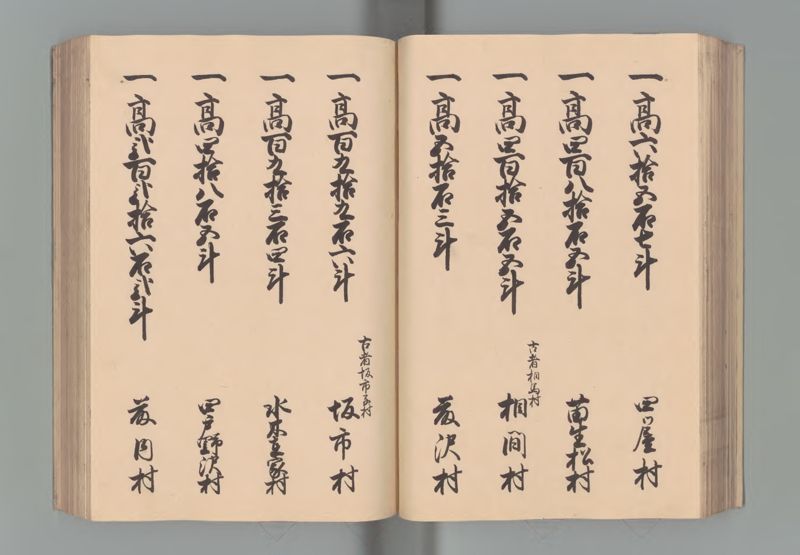 一高六拾五石七斗
四ツ屋村
一高四百八拾石五斗
苗生松村
一高四百拾五石五斗
古者相馬村
相間村
一高五拾石三斗
荒沢村
一高百九拾九石六斗
古者坂市子村
坂市村
一高百九拾三石四斗
水木在家村
一高四拾八石五斗
四戸野沢村
一高弐百弐拾六石弐斗
村